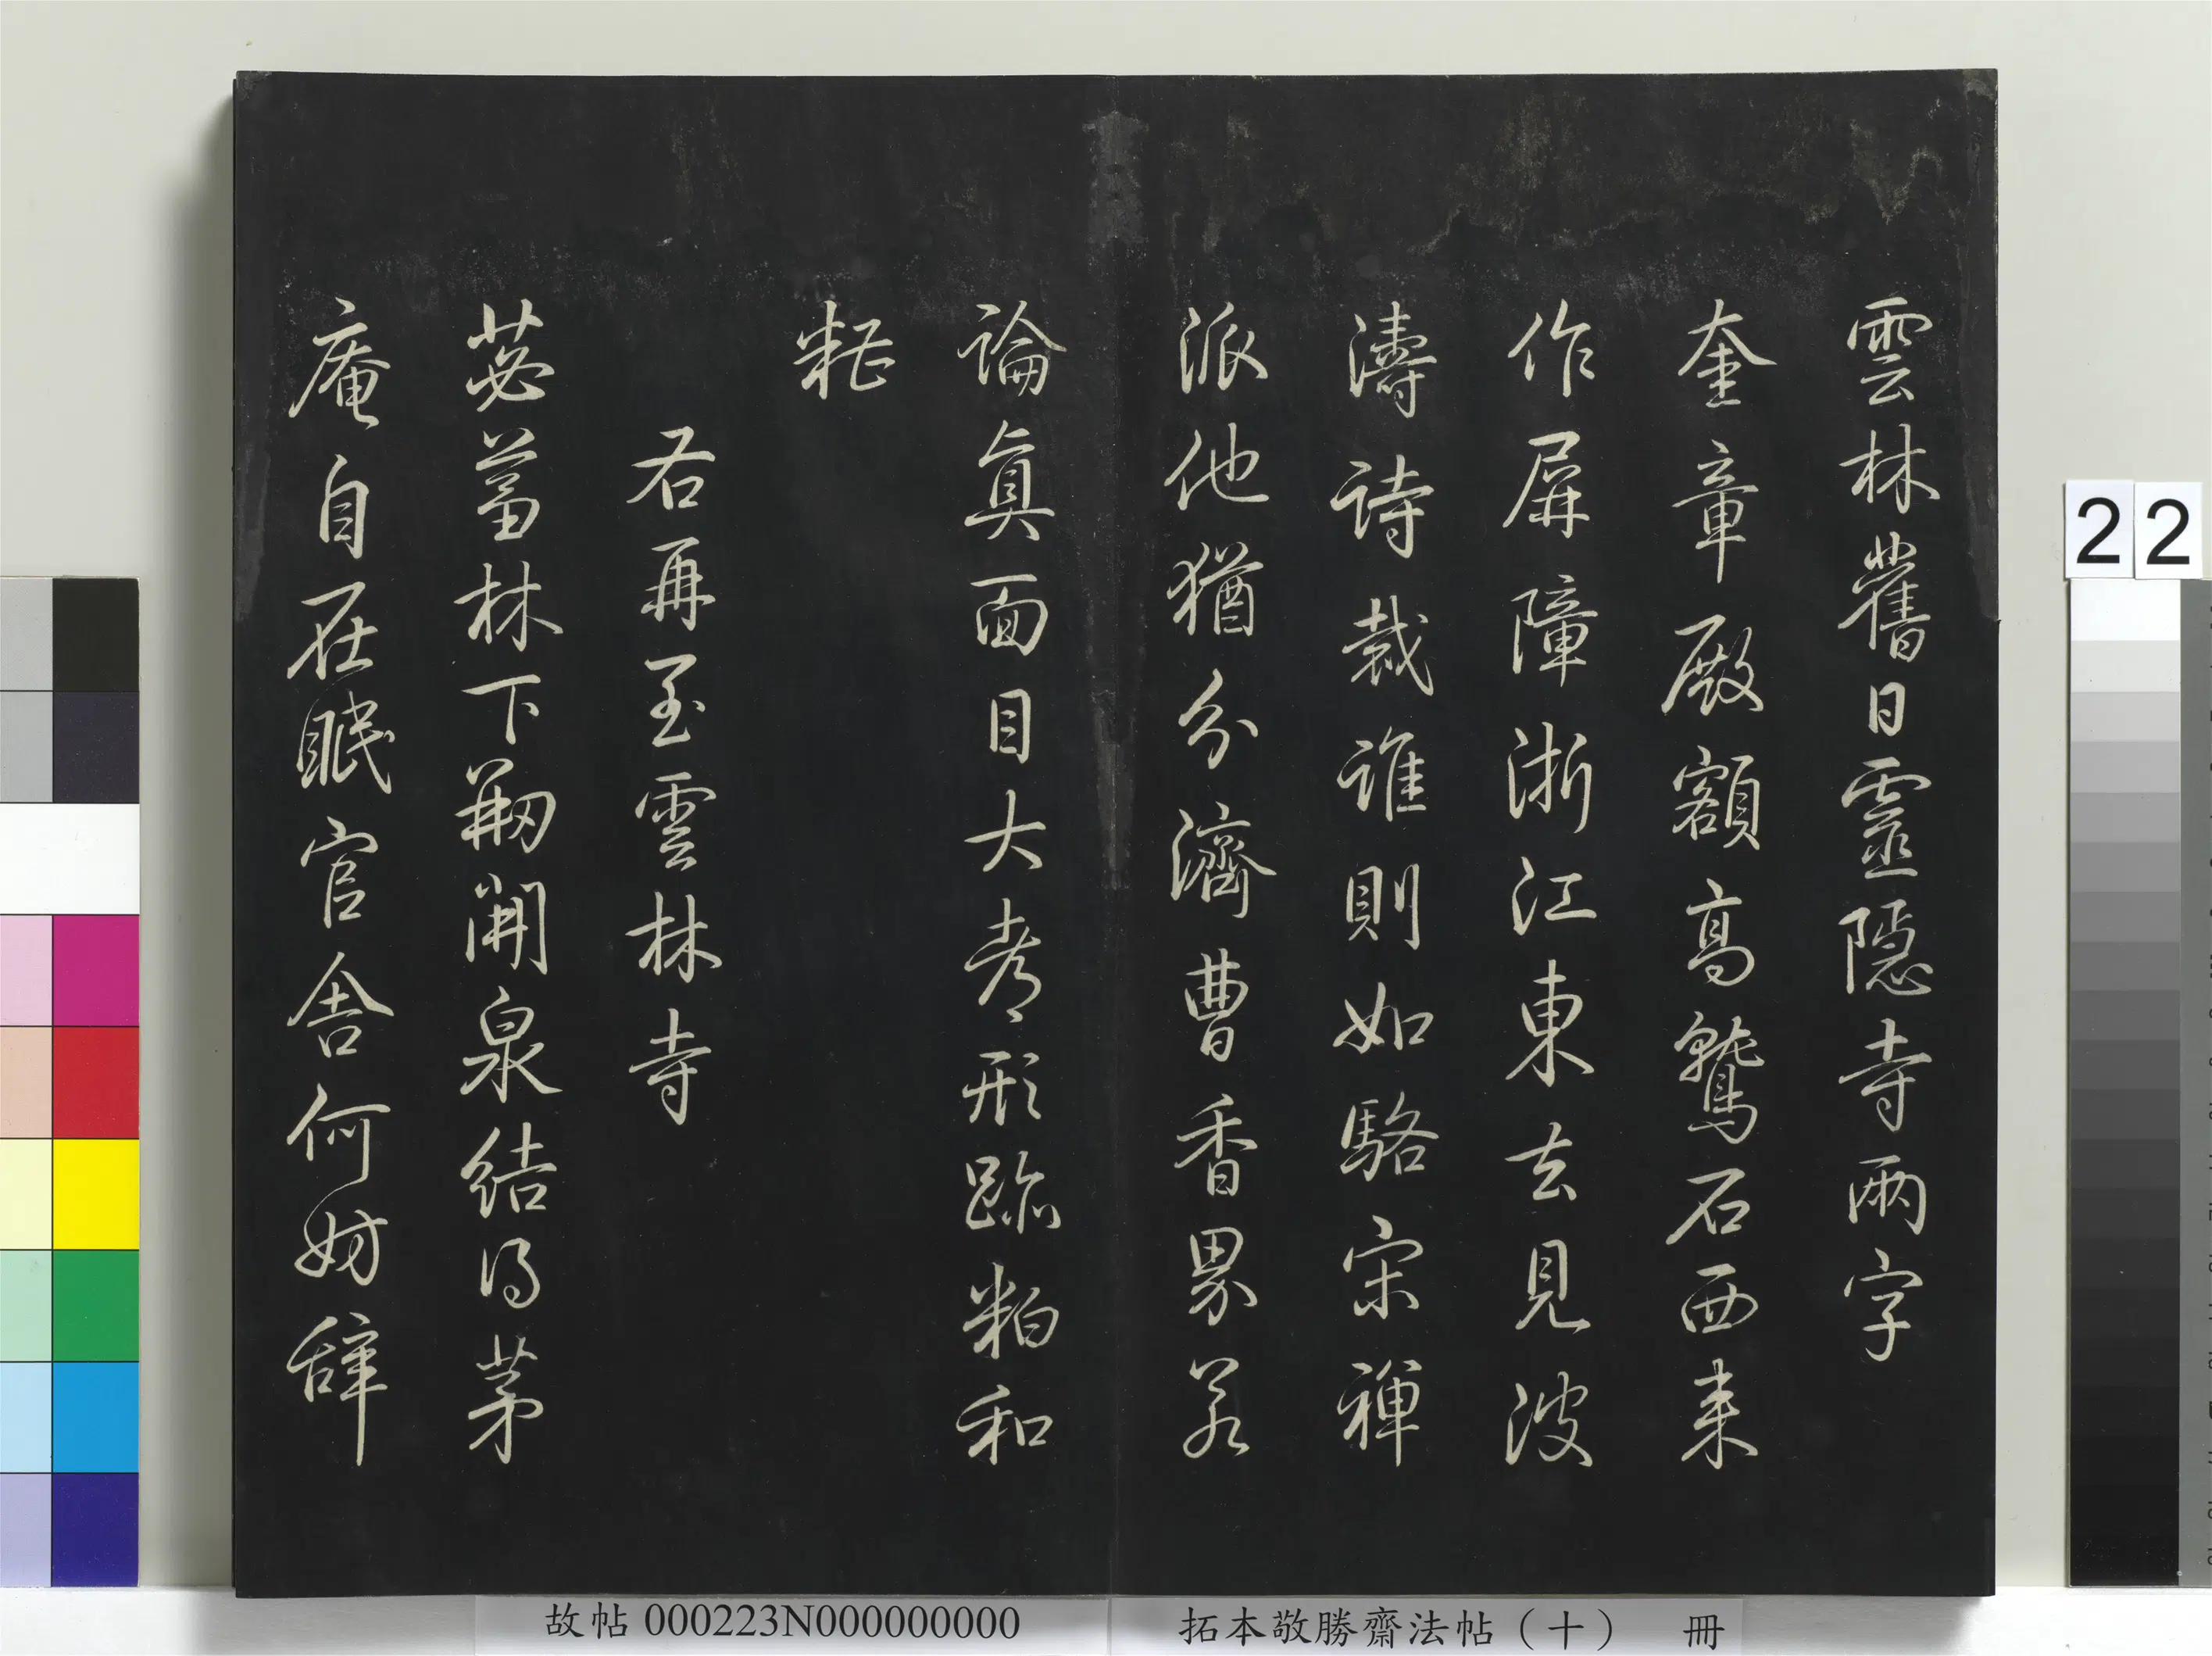 雲林舊日靈隱寺兩字
奎章殿額高鷲石西来
作屏障浙江東去見波
濤詩裁誰則如駱宋禪
派他猶分濟曹香界若
論真面目大都形跡粕和
糟
右再至雲林寺
苾蒭林下剏開泉結得茅
庵自在眠官舍何妨辞
22
故帖 000223N000000000
拓本敬勝齋法帖（十） 冊